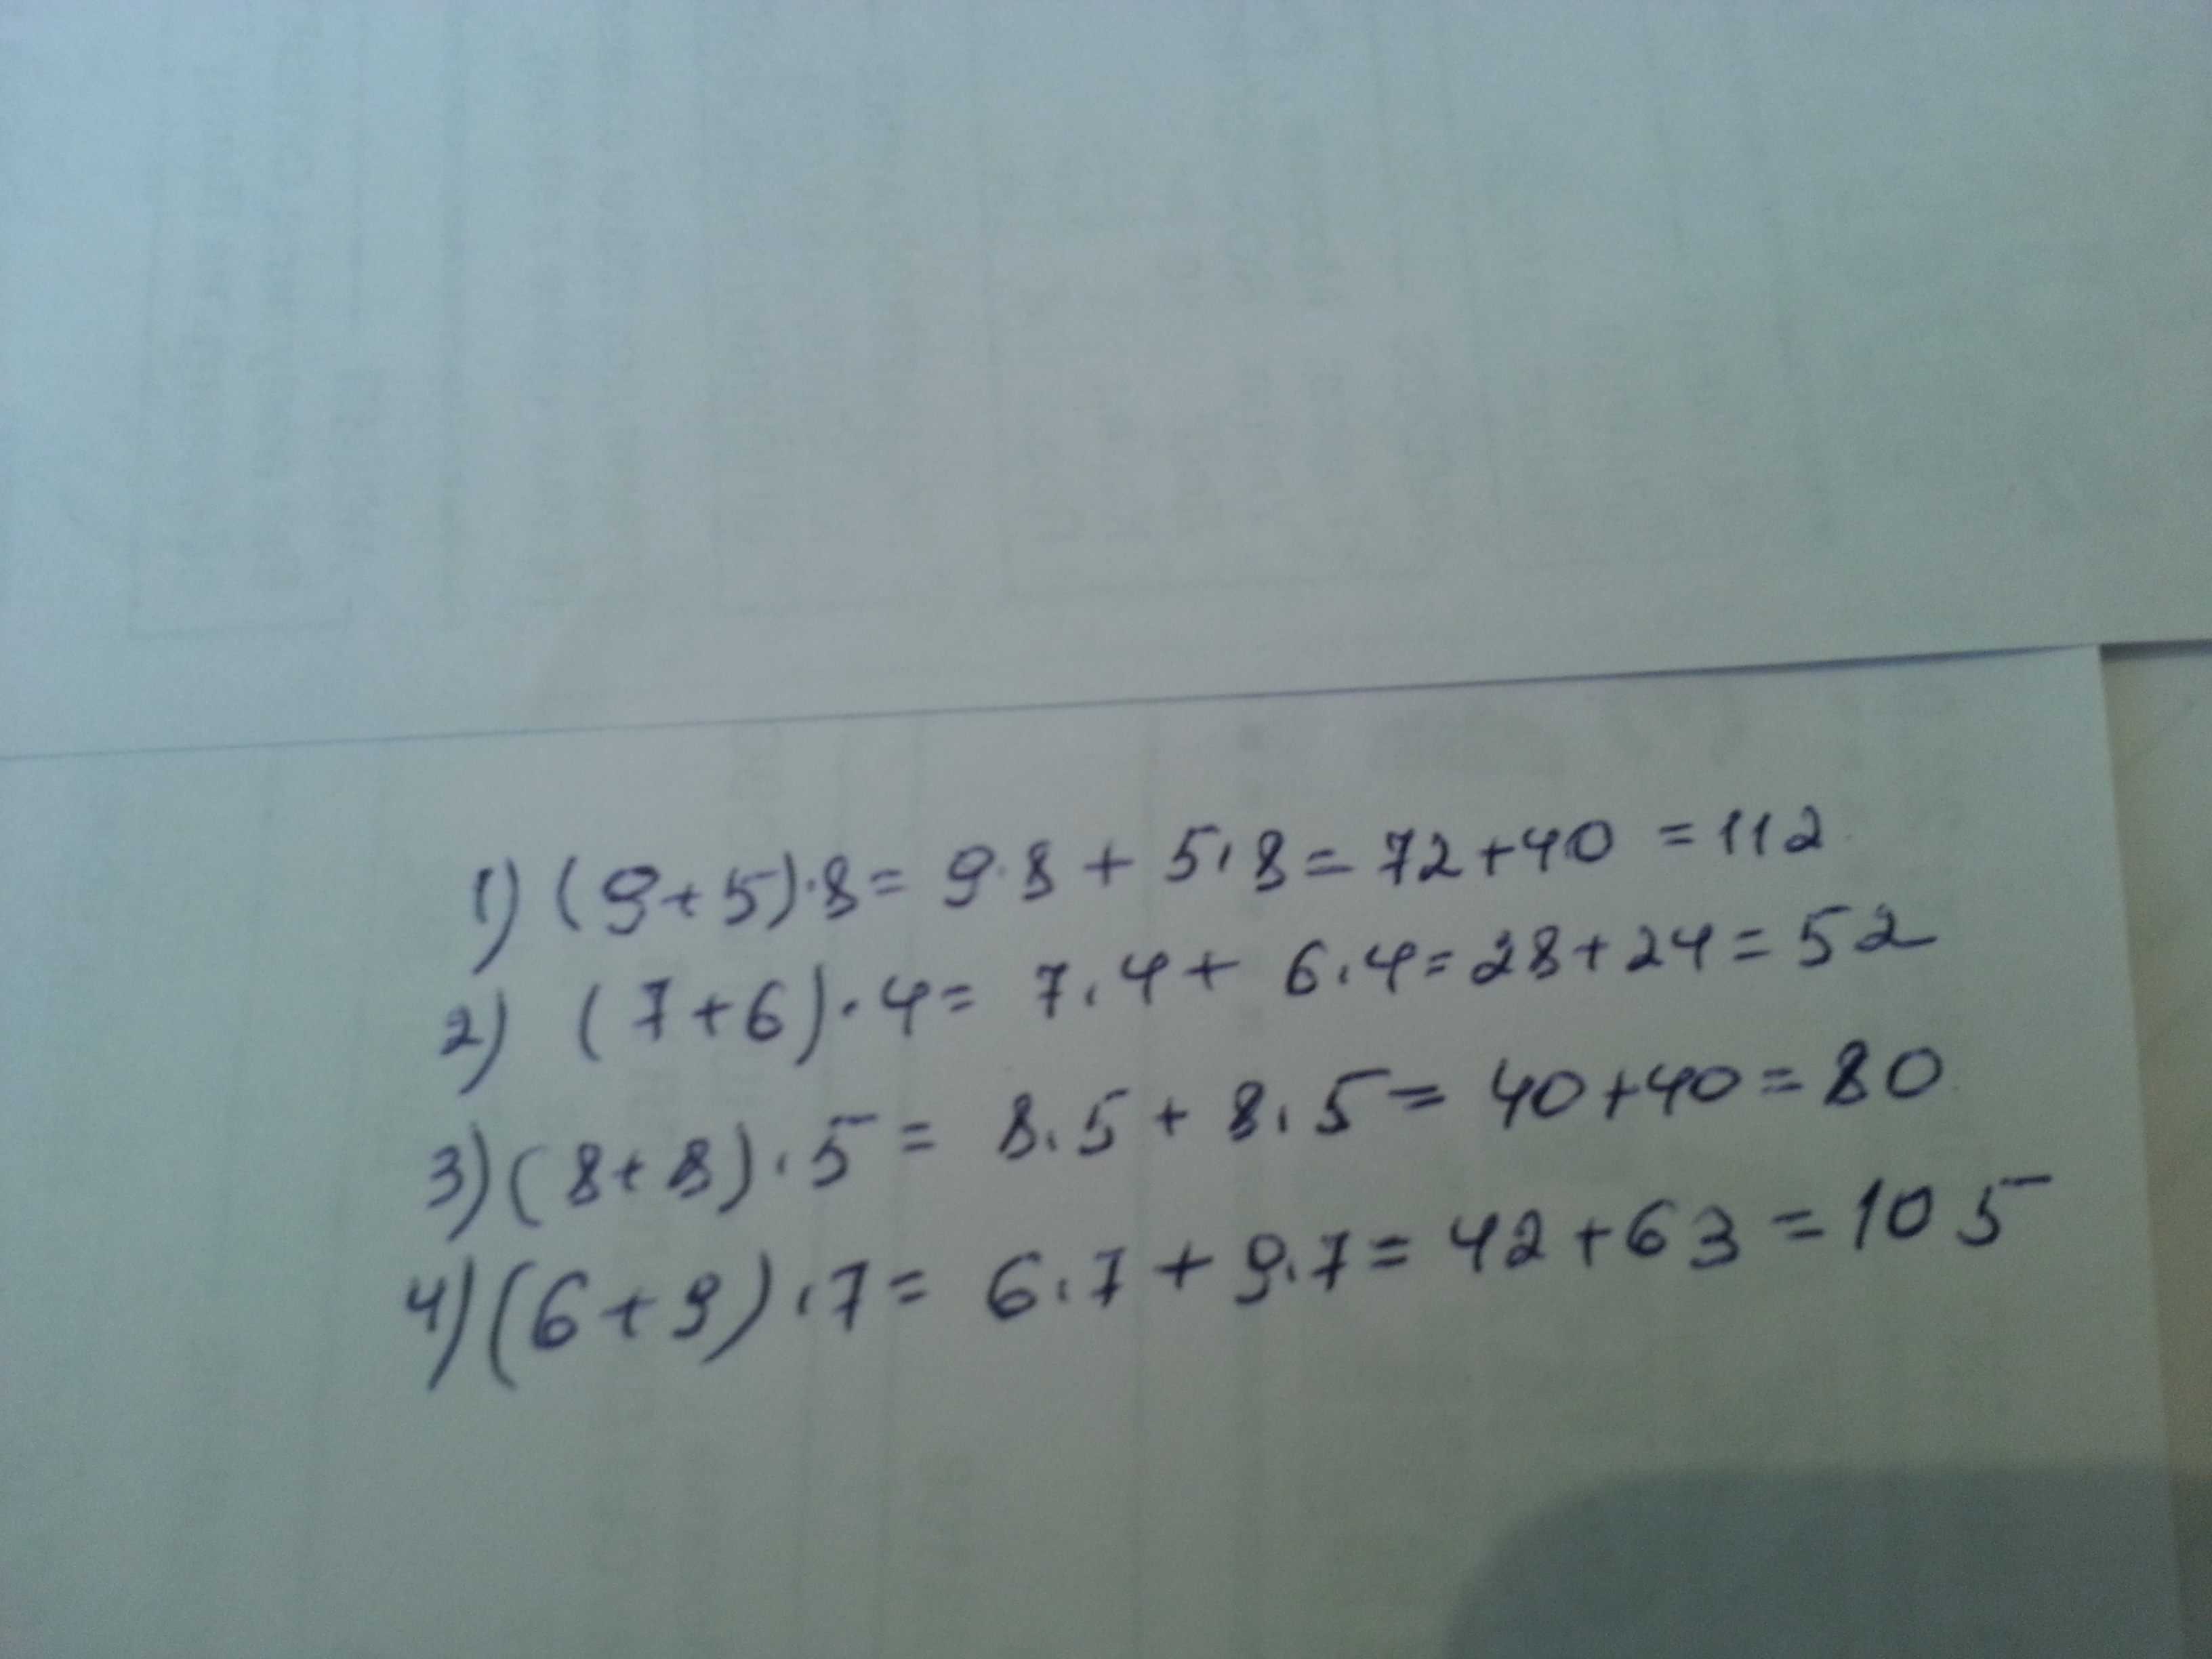 1) (9+5)·8= 9·8 + 5·8= 72+40 =112
2) (7+6)·4= 7·4+ 6·4=28+24=52
3) (8+8)·5= 8·5+8·5= 40+40=80
4) (6+9)·7= 6·7+9·7= 42+63=105